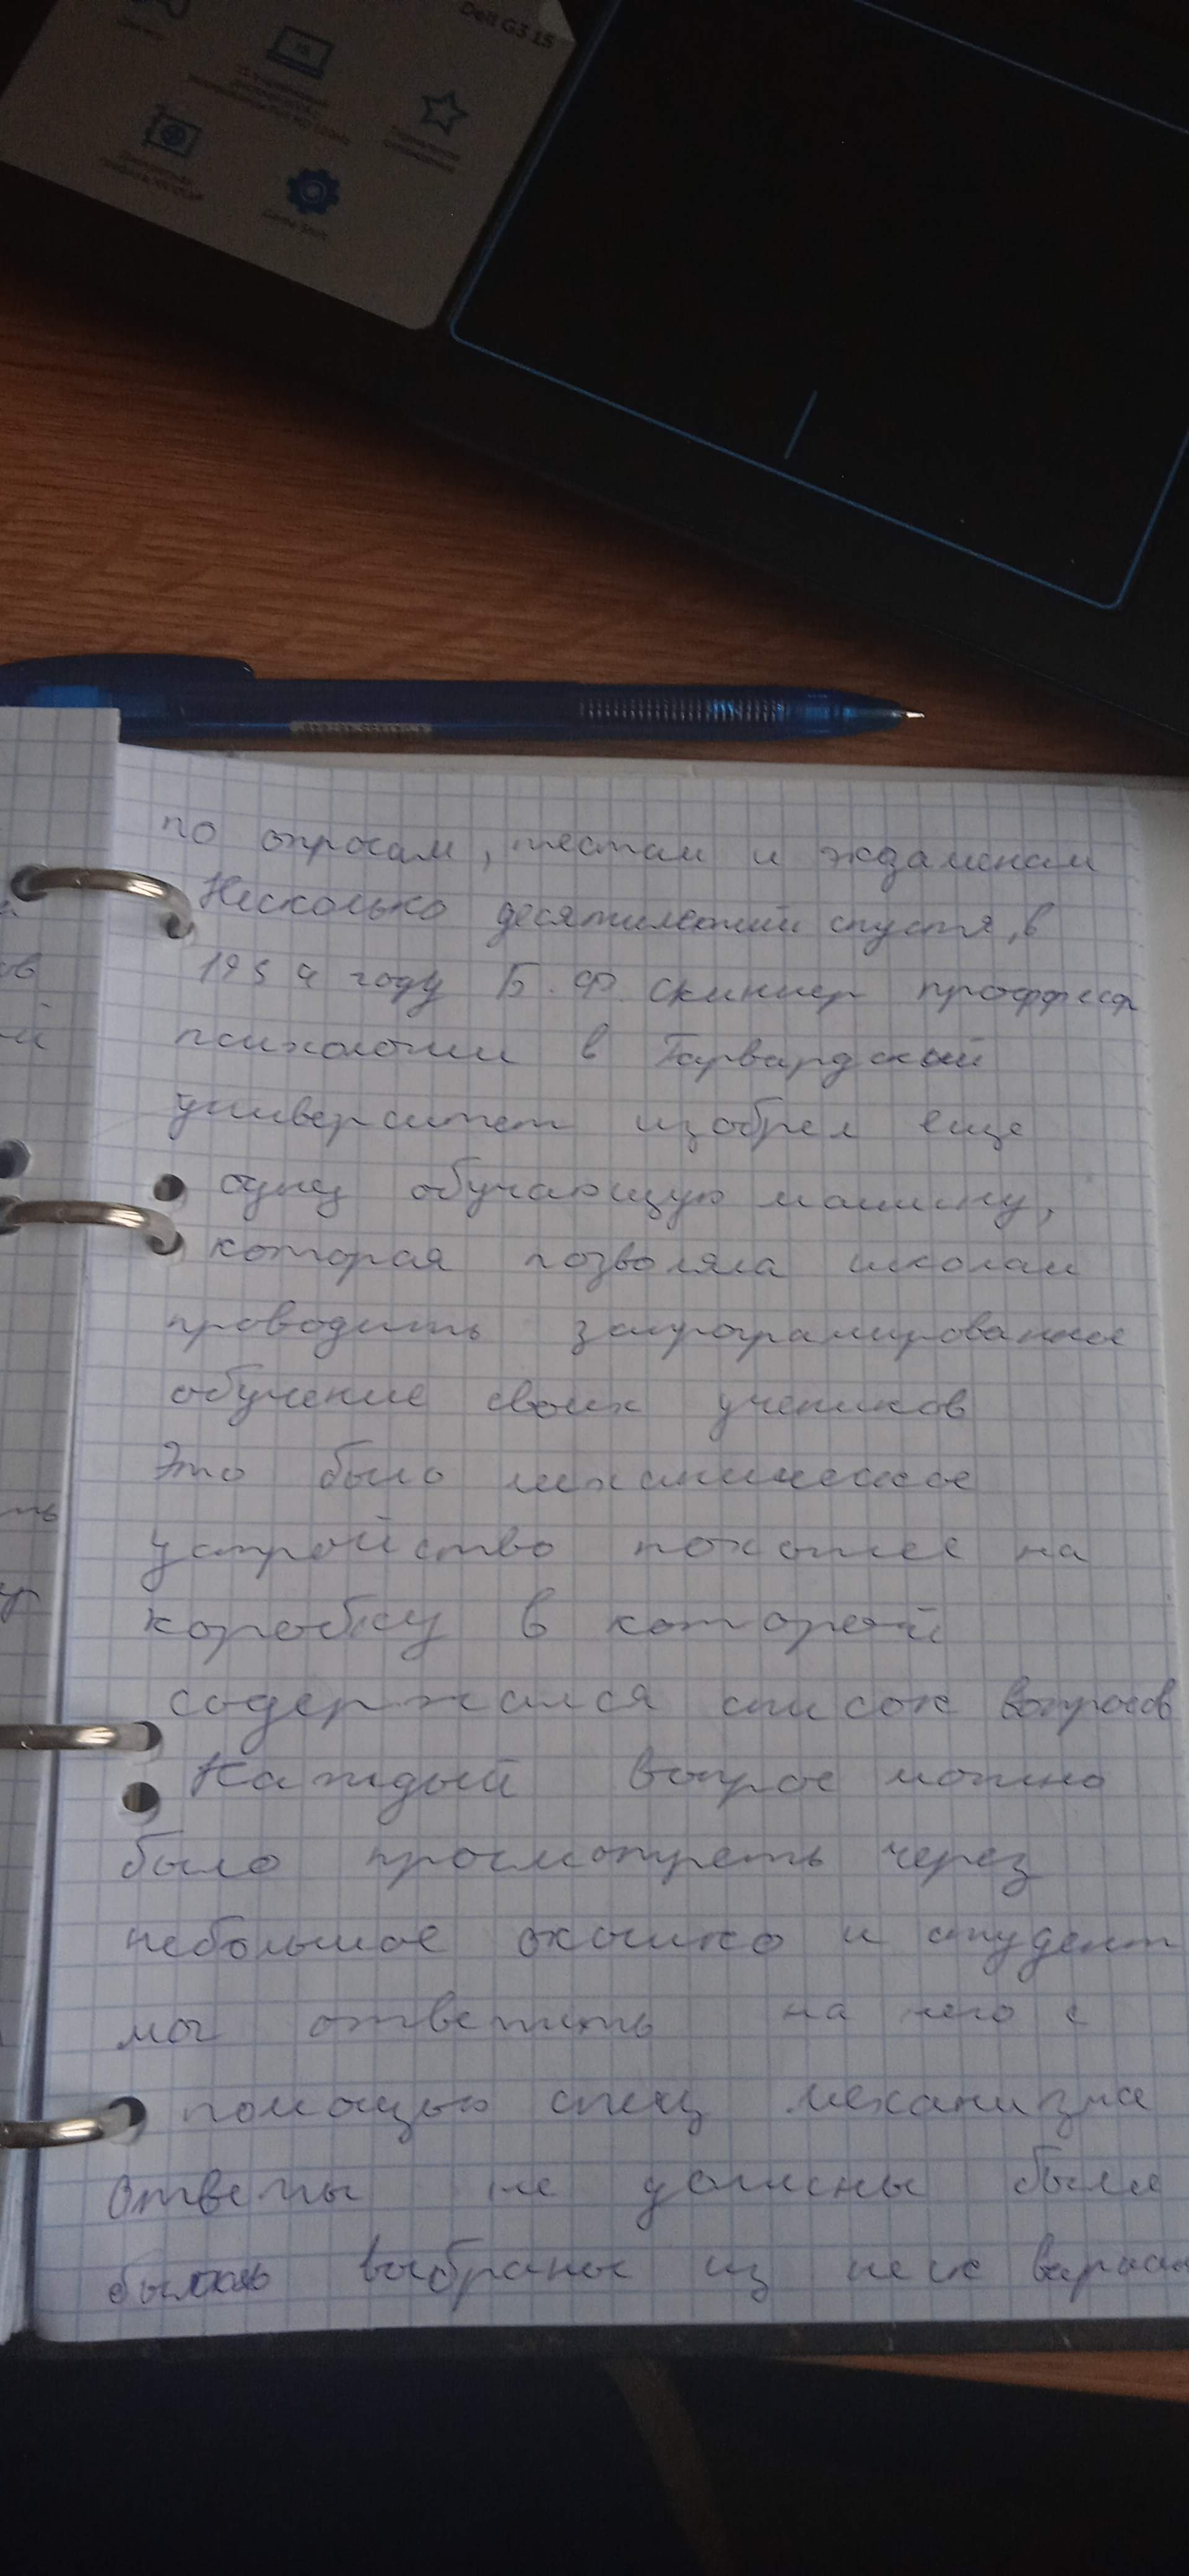 Dell G3 15
Game Shift
по опросам, тестам и экзаменам
Несколько десятилетий спустя, в
1954 году Б.Ф. Скиннер проффесор
психологии в Гарвардский
университет изобрел еще
одну обучающую машину,
которая позволяла школам
проводить запрограмированное
обучение своих учеников
Это было механическое
устройство похожее на
коробку в которой
содержался список вопросов
Каждый вопрос можно
было просмотреть через
небольшое окошко и студент
мог ответить на него с
помощью спец механизма
Ответы не должны были
выбраны из неск